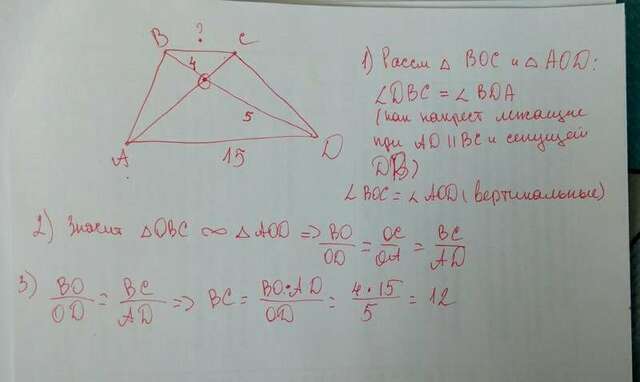 B ? C
4
5
A 15 D
1) Рассм △ BOC и △ AOD:
∠DBC = ∠BDA
(как накрест лежащие
при AD || BC и секущей
DB)
∠BOC = ∠AOD (вертикальные)
2) Значит △OBC ∞ △AOD ⇒ BO/OD = OC/OA = BC/AD
3) BO/OD = BC/AD ⇒ BC = BO•AD/OD = 4•15/5 = 12